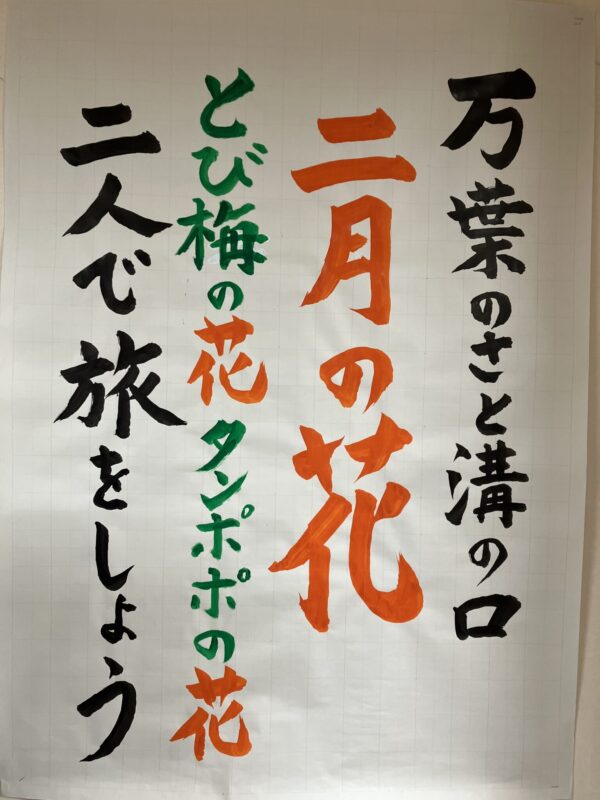 万葉のさと溝の口
二月の花
とび梅の花タンポポの花
二人で旅をしょう